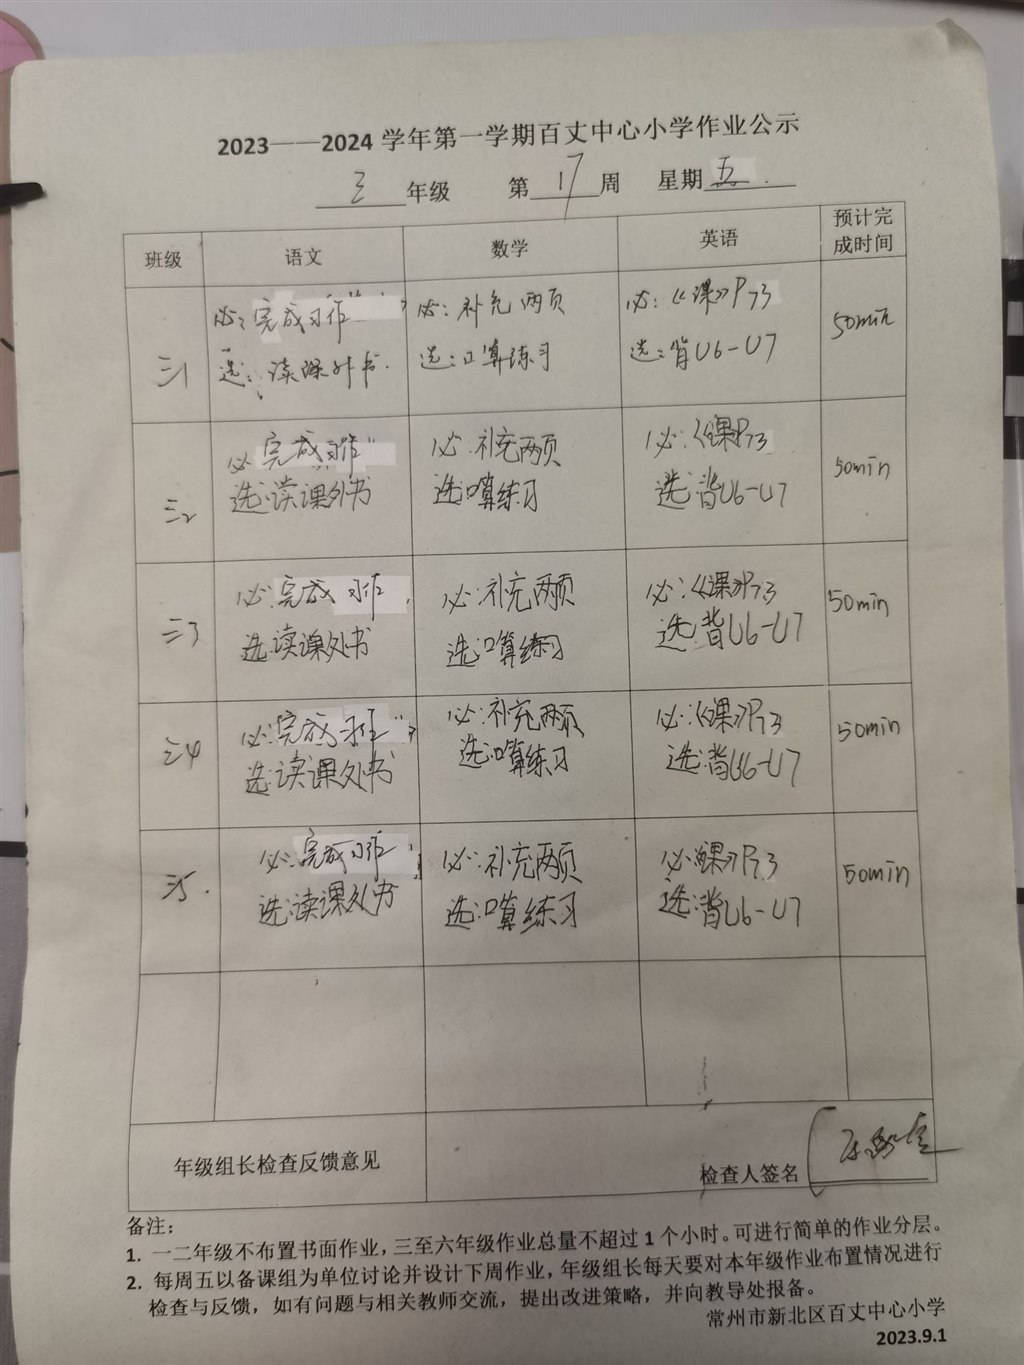 2023——2024 学年第一学期百丈中心小学作业公示
三 年级 第 17 周 星期 五
班级 语文 数学 英语 预计完成时间
三1
必：完成习作
选：读课外书.
必：补充两页
选：口算练习
必：《课》P73
选：背U6-U7
50min
三2
必 完成习作
选：读课外书
必：补充两页
选：口算练习
必：《课》P73
选：背U6-U7
50min
三3
必：完成习作
选：读课外书
必：补充两页
选：口算练习
必：《课》P73
选：背U6-U7
50min
三4
必：完成习作
选：读课外书
必：补充两页
选：口算练习
必：《课》P73
选：背U6-U7
50min
三5.
必：完成习作
选：读课外书
必：补充两页
选：口算练习
必：《课》P73
选：背U6-U7
50min
年级组长检查反馈意见
检查人签名
备注：
1. 一二年级不布置书面作业，三至六年级作业总量不超过 1 个小时。可进行简单的作业分层。
2. 每周五以备课组为单位讨论并设计下周作业，年级组长每天要对本年级作业布置情况进行
检查与反馈，如有问题与相关教师交流，提出改进策略，并向教导处报备。
常州市新北区百丈中心小学
2023.9.1